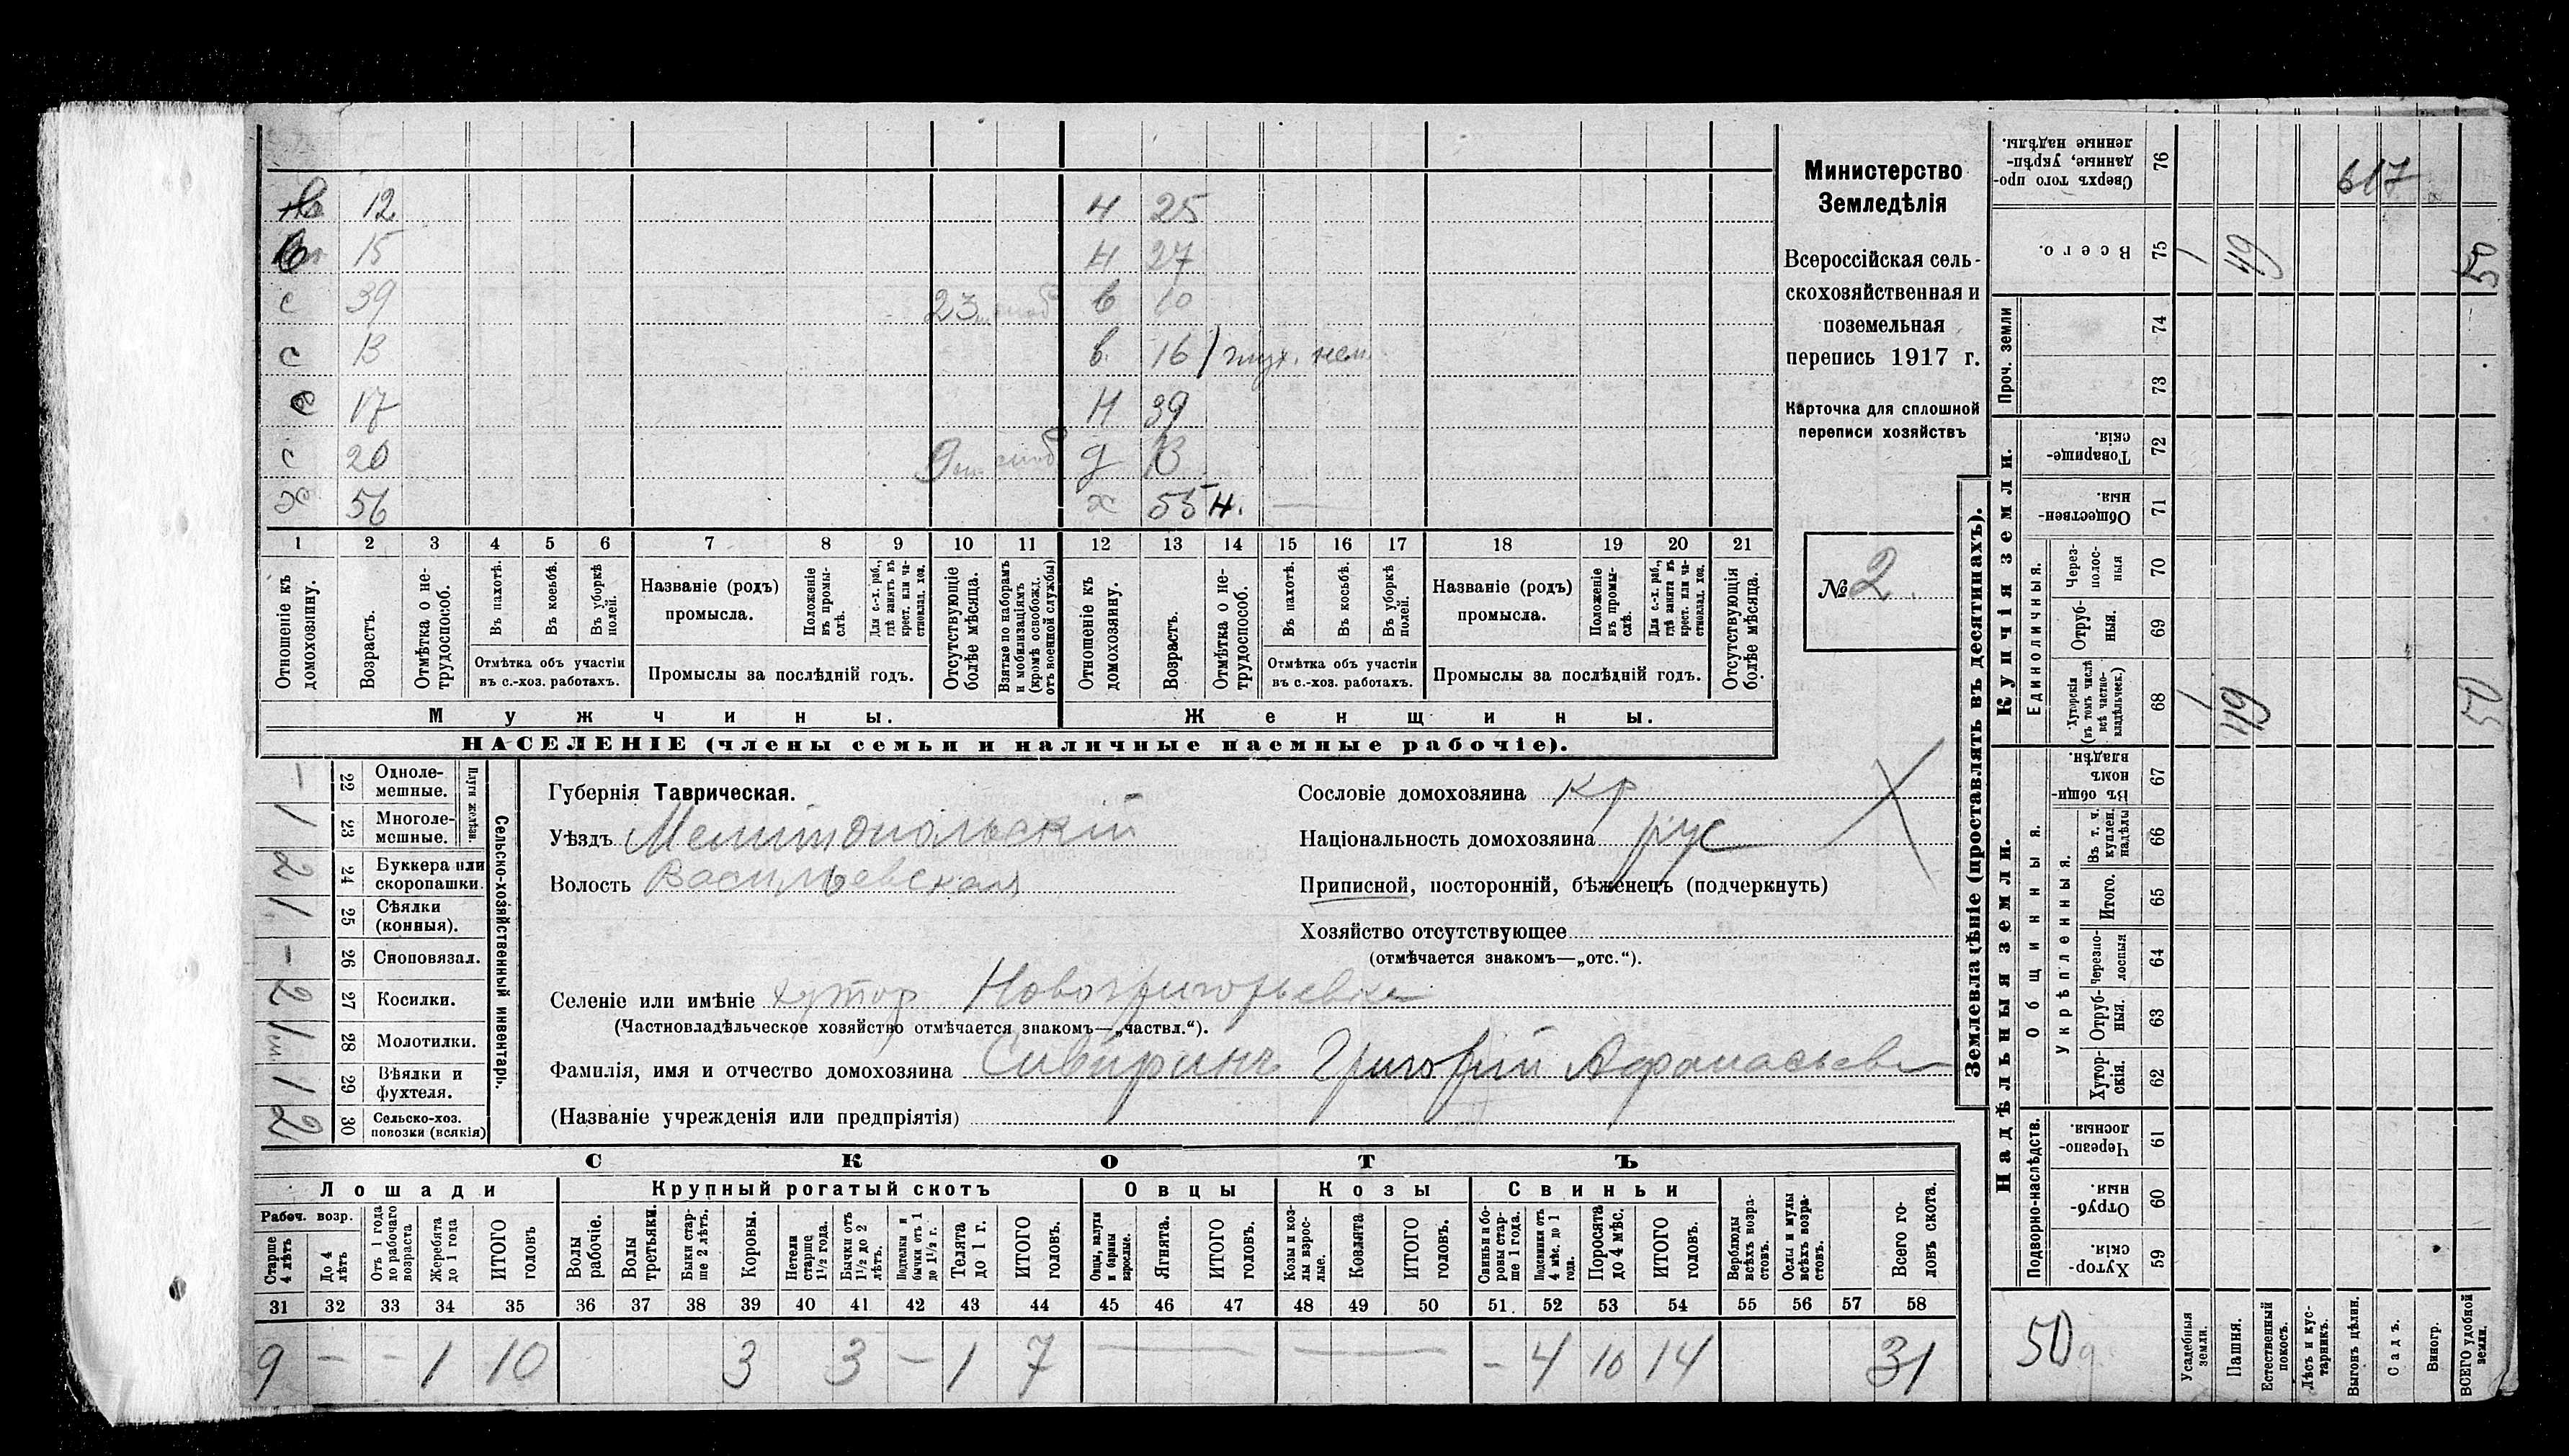 12 н 25
15 н 27
с 39 в 10
с 13 в. 16 глух. нем.
с 17 н 39
с 20 д 13
х 56 х 55 н.
1 2 3 4 5 6 7 8 9 10 11 12 13 14 15 16 17 18 19 20 21
Отношеніе къ домохозяину.
Возрастъ.
Отмѣтка о не-трудоспособ.
Въ пахотѣ.
Въ косьбѣ.
Въ уборкѣ полей.
Отмѣтка объ участіи въ с.-хоз. работахъ.
Названіе (родъ) промысла.
Положеніе въ промы-слѣ.
Для с.-х. раб., гдѣ занятъ въ крест. или ча-стновлад. хоз.
Промыслы за послѣдній годъ.
Отсутствующіе болѣе мѣсяца.
Взятые по наборамъ и мобилизаціямъ (кромѣ освобожд. отъ военной службы)
Отношеніе къ домохозяину.
Возрастъ.
Отмѣтка о не-трудоспособ.
Въ пахотѣ.
Въ косьбѣ.
Въ уборкѣ полей.
Отмѣтка объ участіи въ с.-хоз. работахъ.
Названіе (родъ) промысла.
Положеніе въ промы-слѣ.
Для с.-х. раб., гдѣ занята въ крест. или ча-стновлад. хоз.
Промыслы за послѣдній годъ.
Отсутствующія болѣе мѣсяца.
Мужчины. Женщины.
НАСЕЛЕНІЕ (члены семьи и наличные наемные рабочіе).
Министерство
Земледѣлія
Всероссійская сель-
скохозяйственная и
поземельная
перепись 1917 г.
Карточка для сплошной
переписи хозяйствъ
№ 2.
Сельско-хозяйственный инвентарь.
Плуги желѣзн.
- 22 Одноле-мешные.
1 23 Многоле-мешные.
2 24 Буккера или скоропашки.
1 25 Сѣялки (конныя).
- 26 Сноповязал.
2 27 Косилки.
1 28 Молотилки.
1 29 Вѣялки и фухтеля.
2 30 Сельско-хоз. повозки (всякія)
Губернія Таврическая.
Уѣздъ Мелитопольскій
Волость Васильевская
Сословіе домохозяина кр
Національность домохозяина рус
Приписной, посторонній, бѣженецъ (подчеркнуть)
Хозяйство отсутствующее
(отмѣчается знакомъ—„отс.“).
Селеніе или имѣніе хутор Новогригорьевка
(Частновладѣльческое хозяйство отмѣчается знакомъ—„частвл.“).
Фамилія, имя и отчество домохозяина Григорій Афанасьев
(Названіе учрежденія или предпріятія)
СКОТЪ
Лошади Крупный рогатый скотъ Овцы Козы Свиньи
Рабоч. возр.
Старше 4 лѣтъ
До 4 лѣтъ
Отъ 1 года до рабочаго возраста
Жеребята до 1 года
ИТОГО головъ
Волы рабочіе.
Волы третьяки.
Быки стар-ше 2 лѣтъ.
Коровы.
Нетели старше 1½ года.
Бычки отъ 1½ до 2 лѣтъ.
Подтелки и бычки отъ 1 до 1½ г.
Телята до 1 г.
ИТОГО головъ.
Овцы, валухи и бараны взрослые.
Ягнята.
ИТОГО головъ.
Козы и коз-лы взрос-лые.
Козлята
ИТОГО головъ.
Свиньи и бо-ровы стар-ше 1 года.
Подсвинки отъ 4 мѣс. до 1 года.
Поросята до 4 мѣс.
ИТОГО головъ.
Верблюды всѣхъ возра-стовъ.
Ослы и мулы всѣхъ возра-стовъ.
Всего го-ловъ скота.
31 32 33 34 35 36 37 38 39 40 41 42 43 44 45 46 47 48 49 50 51 52 53 54 55 56 57 58
9 - - 1 10 3 3 - 1 7 - 4 10 14 31
Землевладѣніе (проставлять въ десятинахъ).
Сверхъ того про-данные, укрѣп-ленные надѣлы. 76 617
Всего. 75 1 49 50
Проч. земли 74
73
Купчія земли.
Товарище-скія. 72
Обществен-ныя. 71
Единоличныя.
Через-полос-ныя 70
Отруб-ныя. 69
Хуторскія (въ томъ числѣ всѣ частно-владѣльческ.) 68 1 49 50
Надѣльныя земли.
Общинныя.
Въ общи-номъ владѣн. 67
Укрѣпленныя.
Въ т. ч. куплен. надѣлы 66
Итого. 65
Черезпо-лосныя 64
Отруб-ныя. 63
Хутор-скія. 62
Подворно-наслѣдств.
Черезпо-лосныя. 61
Отруб-ныя. 60
Хутор-скія. 59
50
Усадебныя земли.
Пашня.
Естественный покосъ.
Лѣсъ и кус-тарникъ.
Выгонъ цѣлин.
Садъ.
Виногр.
ВСЕГО удобной земли.